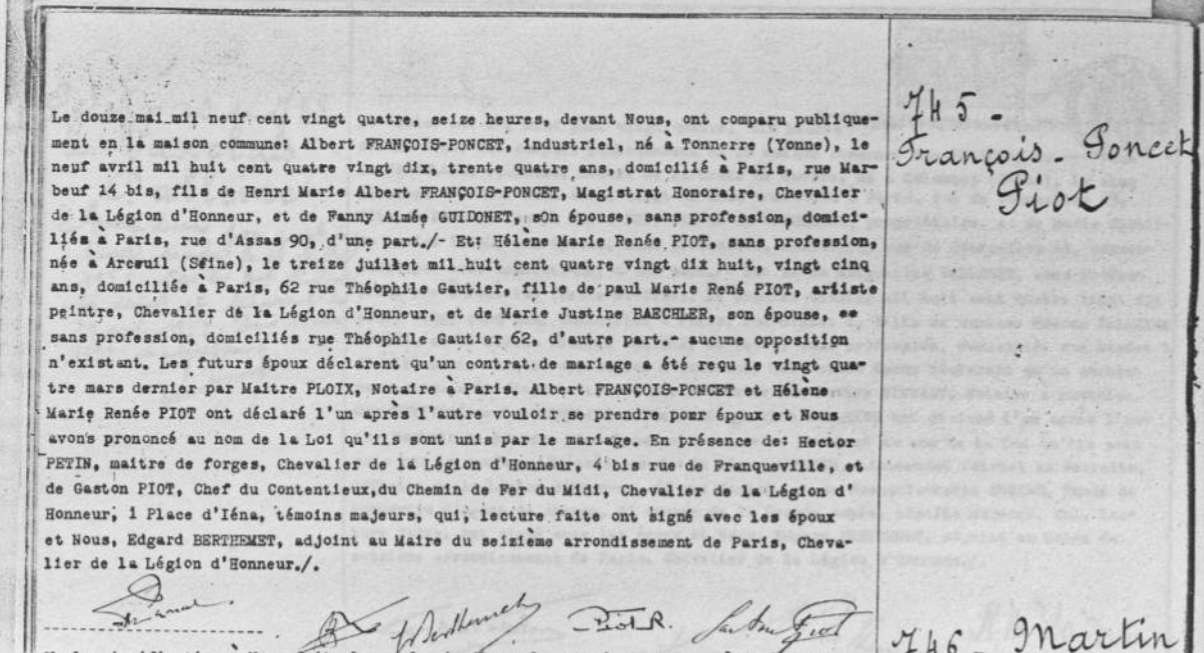 Le douze mai mil neuf cent vingt quatre, seize heures, devant Nous, ont comparu publique-
ment en la maison commune: Albert FRANÇOIS-PONCET, industriel, né à Tonnerre (Yonne), le
neuf avril mil huit cent quatre vingt dix, trente quatre ans, domicilié à Paris, rue Mar-
beuf 14 bis, fils de Henri Marie Albert FRANÇOIS-PONCET, Magistrat Honoraire, Chevalier
de la Légion d'Honneur, et de Fanny Aimée GUIDONET, son épouse, sans profession, domici-
liés à Paris, rue d'Assas 90, d'une part./- Et: Hélène Marie Renée PIOT, sans profession,
née à Arceuil (Seine), le treize juillet mil huit cent quatre vingt dix huit, vingt cinq
ans, domiciliée à Paris, 62 rue Théophile Gautier, fille de paul Marie René PIOT, artiste
peintre, Chevalier de la Légion d'Honneur, et de Marie Justine BAECHLER, son épouse,
sans profession, domiciliés rue Théophile Gautier 62, d'autre part.- aucune opposition
n'existant. Les futurs époux déclarent qu'un contrat de mariage a été reçu le vingt qua-
tre mars dernier par Maitre PLOIX, Notaire à Paris. Albert FRANÇOIS-PONCET et Hélène
Marie Renée PIOT ont déclaré l'un après l'autre vouloir se prendre pour époux et Nous
avons prononcé au nom de la Loi qu'ils sont unis par le mariage. En présence de: Hector
PETIN, maitre de forges, Chevalier de la Légion d'Honneur, 4 bis rue de Franqueville, et
de Gaston PIOT, Chef du Contentieux,du Chemin de Fer du Midi, Chevalier de la Légion d'
Honneur, 1 Place d'Iéna, témoins majeurs, qui, lecture faite ont signé avec les époux
et Nous, Edgard BERTHEMET, adjoint au Maire du seizième arrondissement de Paris, Cheva-
lier de la Légion d'Honneur./.
Piot R.
Gaston Piot
745 -
François - Poncet
Piot
746 - Martin